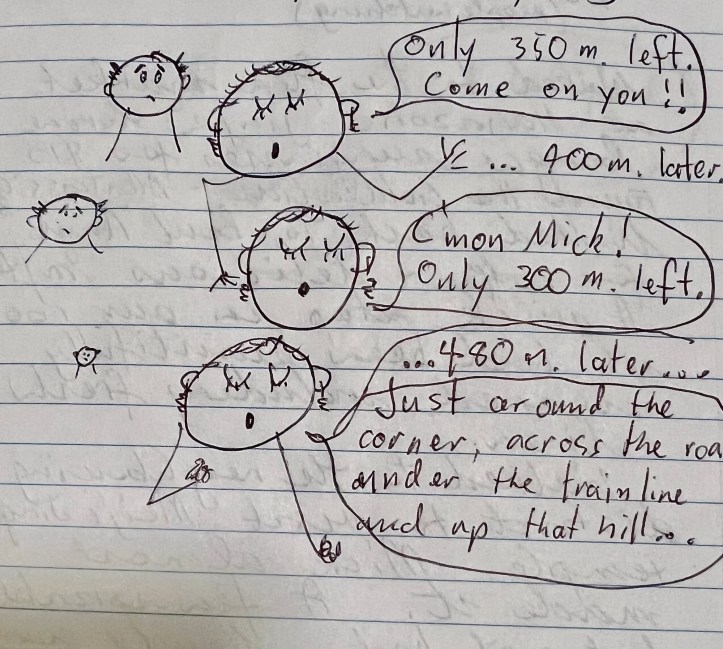 Only 350 m. left.
Come on you !!
... 400 m. later.
C'mon Mick!
Only 300 m. left.
...480 m. later...
Just around the
corner, across the roa
under the train line
and up that hill...